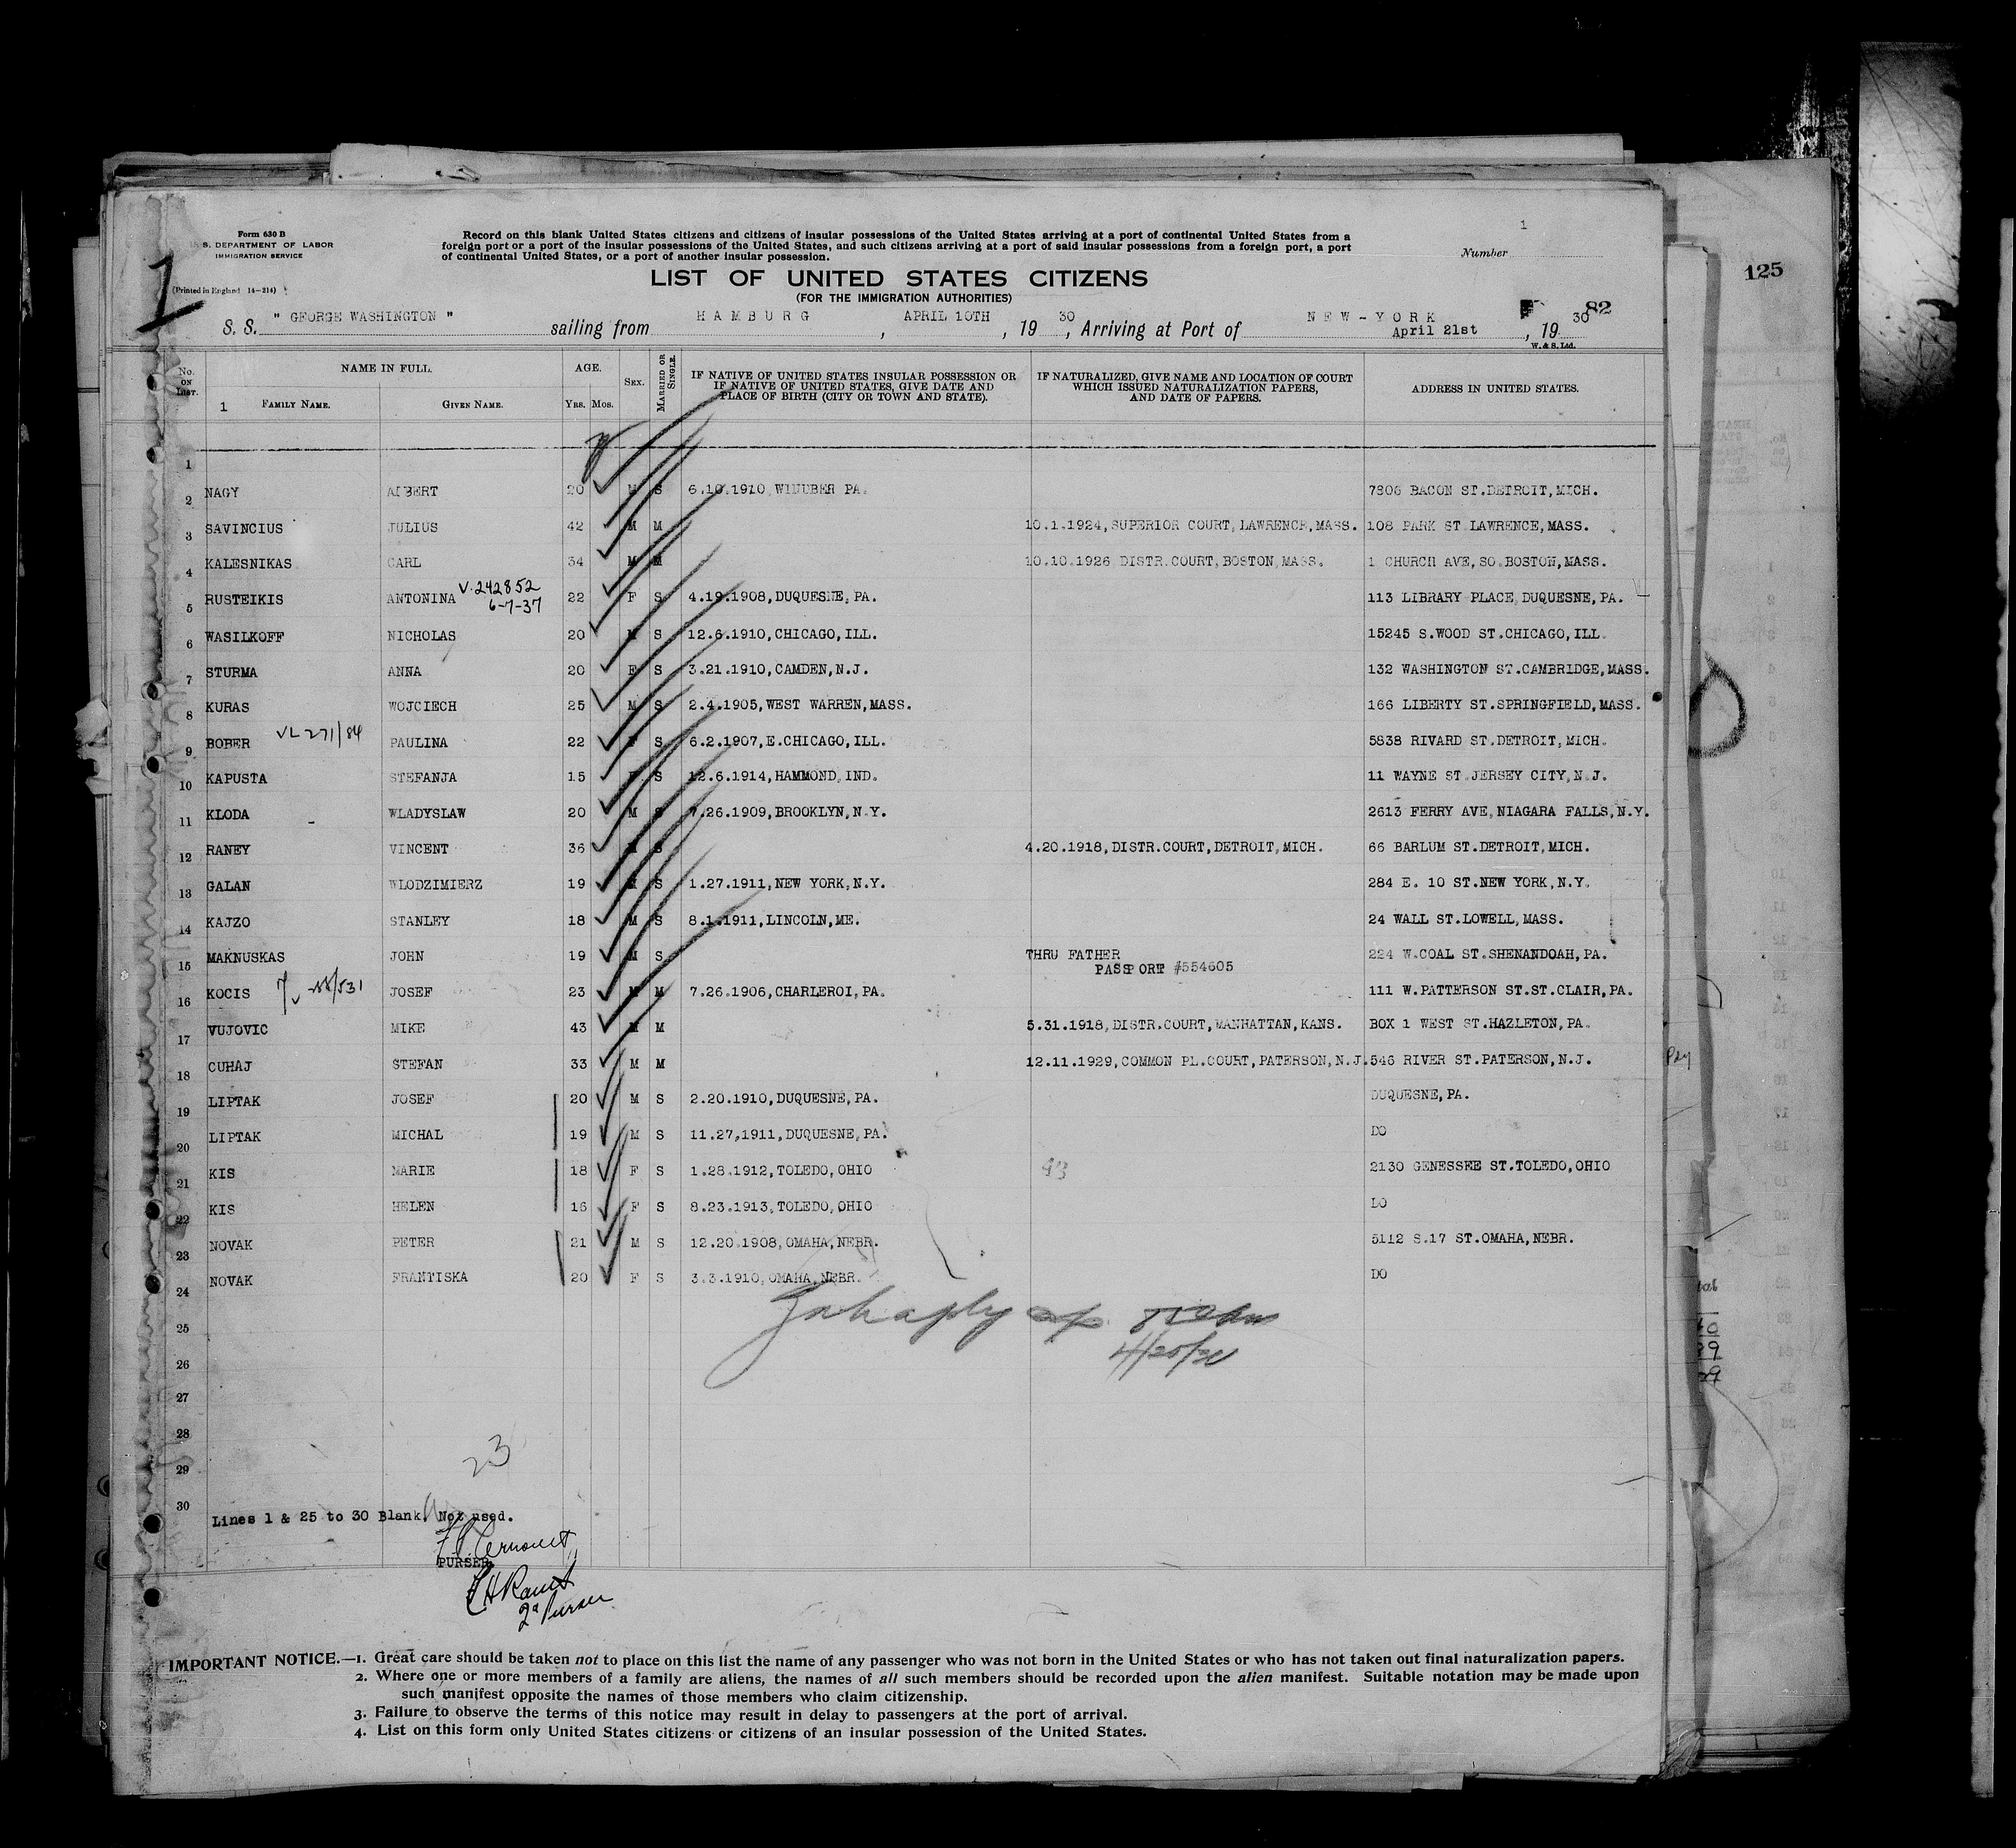 Form 630 B
S. DEPARTMENT OF LABOR
IMMIGRATION SERVICE
(Printed in England 14-214)
Record on this blank United States citizens and citizens of insular possessions of the United States arriving at a port of continental United States from a
foreign port or a port of the insular possessions of the United States, and such citizens arriving at a port of said insular possessions from a foreign port, a port
of continental United States, or a port of another insular possession.
1
Number
125
LIST OF UNITED STATES CITIZENS
(FOR THE IMMIGRATION AUTHORITIES)
82
S. S. " GEORGE WASHINGTON " sailing from HAMBURG, APRIL 10TH, 1930, Arriving at Port of NEW-YORK April 21st, 1930
W. & S. Ltd.
No. ON LIST. NAME IN FULL. AGE. SEX. MARRIED OR SINGLE. IF NATIVE OF UNITED STATES INSULAR POSSESSION OR IF NATIVE OF UNITED STATES, GIVE DATE AND PLACE OF BIRTH (CITY OR TOWN AND STATE). IF NATURALIZED, GIVE NAME AND LOCATION OF COURT WHICH ISSUED NATURALIZATION PAPERS, AND DATE OF PAPERS. ADDRESS IN UNITED STATES.
1 FAMILY NAME. GIVEN NAME. YRS. MOS.
1
2 NAGY ALBERT 20 M S 6.10.1910, WINDBER PA. 7806 BACON ST.DETROIT,MICH.
3 SAVINCIUS JULIUS 42 M M 10.1.1924,SUPERIOR COURT,LAWRENCE,MASS. 108 PARK ST LAWRENCE,MASS.
4 KALESNIKAS CARL 34 M M 10.10.1926 DISTR.COURT,BOSTON MASS. 1 CHURCH AVE,SO.BOSTON,MASS.
V-242852
6-7-37
5 RUSTEIKIS ANTONINA 22 F S 4.19.1908,DUQUESNE,PA. 113 LIBRARY PLACE DUQUESNE,PA.
6 WASILKOFF NICHOLAS 20 M S 12.6.1910,CHICAGO,ILL. 15245 S.WOOD ST.CHICAGO,ILL
7 STURMA ANNA 20 F S 3.21.1910,CAMDEN,N.J. 132 WASHINGTON ST.CAMBRIDGE,MASS.
8 KURAS WOJCIECH 25 M S 2.4.1905,WEST WARREN,MASS. 166 LIBERTY ST.SPRINGFIELD,MASS.
VL 271/84
9 BOBER PAULINA 22 F S 6.2.1907,E.CHICAGO,ILL. 5838 RIVARD ST.DETROIT,MICH.
10 KAPUSTA STEFANJA 15 F S 12.6.1914,HAMMOND,IND. 11 WAYNE ST.JERSEY CITY,N.J.
11 KLODA WLADYSLAW 20 M S 7.26.1909,BROOKLYN,N.Y. 2613 FERRY AVE,NIAGARA FALLS,N.Y.
12 RANEY VINCENT 36 M S 4.20.1918,DISTR.COURT,DETROIT,MICH. 66 BARLUM ST.DETROIT,MICH.
13 GALAN WLODZIMIERZ 19 M S 1.27.1911,NEW YORK,N.Y. 284 E. 10 ST.NEW YORK,N.Y.
14 KAJZO STANLEY 18 M S 8.1.1911,LINCOLN,ME. 24 WALL ST.LOWELL,MASS.
15 MAKNUSKAS JOHN 19 M S THRU FATHER 224 W.COAL ST.SHENANDOAH,PA.
PASSPORT #554605
16 KOCIS JOSEF 23 M M 7.26.1906,CHARLEROI,PA. 111 W.PATTERSON ST.ST.CLAIR,PA.
17 VUJOVIC MIKE 43 M M 5.31.1918,DISTR.COURT,MANHATTAN,KANS. BOX 1 WEST ST.HAZLETON,PA.
18 CUHAJ STEFAN 33 M M 12.11.1929,COMMON PL.COURT,PATERSON,N.J. 546 RIVER ST.PATERSON,N.J.
19 LIPTAK JOSEF 20 M S 2.20.1910,DUQUESNE,PA. DUQUESNE,PA.
20 LIPTAK MICHAL 19 M S 11.27,1911,DUQUESNE,PA. DO
21 KIS MARIE 18 F S 1.28.1912,TOLEDO,OHIO 2130 GENESSEE ST.TOLEDO,OHIO
22 KIS HELEN 16 F S 8.23.1913,TOLEDO,OHIO DO
23 NOVAK PETER 21 M S 12.20.1908,OMAHA,NEBR. 5112 S.17 ST.OMAHA,NEBR.
24 NOVAK FRANTISKA 20 F S 3.3.1910,OMAHA,NEBR. DO
25
26
27
28
23
29
30
Lines 1 & 25 to 30 Blank. Not used.
PURSER
2d Purser
IMPORTANT NOTICE.—1. Great care should be taken not to place on this list the name of any passenger who was not born in the United States or who has not taken out final naturalization papers.
2. Where one or more members of a family are aliens, the names of all such members should be recorded upon the alien manifest. Suitable notation may be made upon
such manifest opposite the names of those members who claim citizenship.
3. Failure to observe the terms of this notice may result in delay to passengers at the port of arrival.
4. List on this form only United States citizens or citizens of an insular possession of the United States.